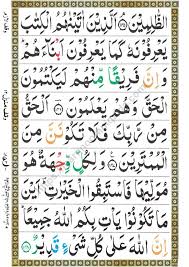 الظّٰلِمِیْنَ ﴿۱۴۵﴾ اَلَّذِیْنَ اٰتَیْنٰهُمُ الْكِتٰبَ
یَعْرِفُوْنَهٗ كَمَا یَعْرِفُوْنَ اَبْنَآءَهُمْ ؕ
وَ اِنَّ فَرِیْقًا مِّنْهُمْ لَیَكْتُمُوْنَ
الْحَقَّ وَ هُمْ یَعْلَمُوْنَ ﴿۱۴۶﴾ اَلْحَقُّ
مِنْ رَّبِّكَ فَلَا تَكُوْنَنَّ مِنَ
الْمُمْتَرِیْنَ ﴿۱۴۷﴾ وَ لِكُلٍّ وِّجْهَةٌ هُوَ
مُوَلِّیْهَا فَاسْتَبِقُوا الْخَیْرٰتِ ؕ اَیْنَ
مَا تَكُوْنُوْا یَاْتِ بِكُمُ اللّٰهُ جَمِیْعًا ؕ
اِنَّ اللّٰهَ عَلٰی كُلِّ شَیْءٍ قَدِیْرٌ ﴿۱۴۸﴾